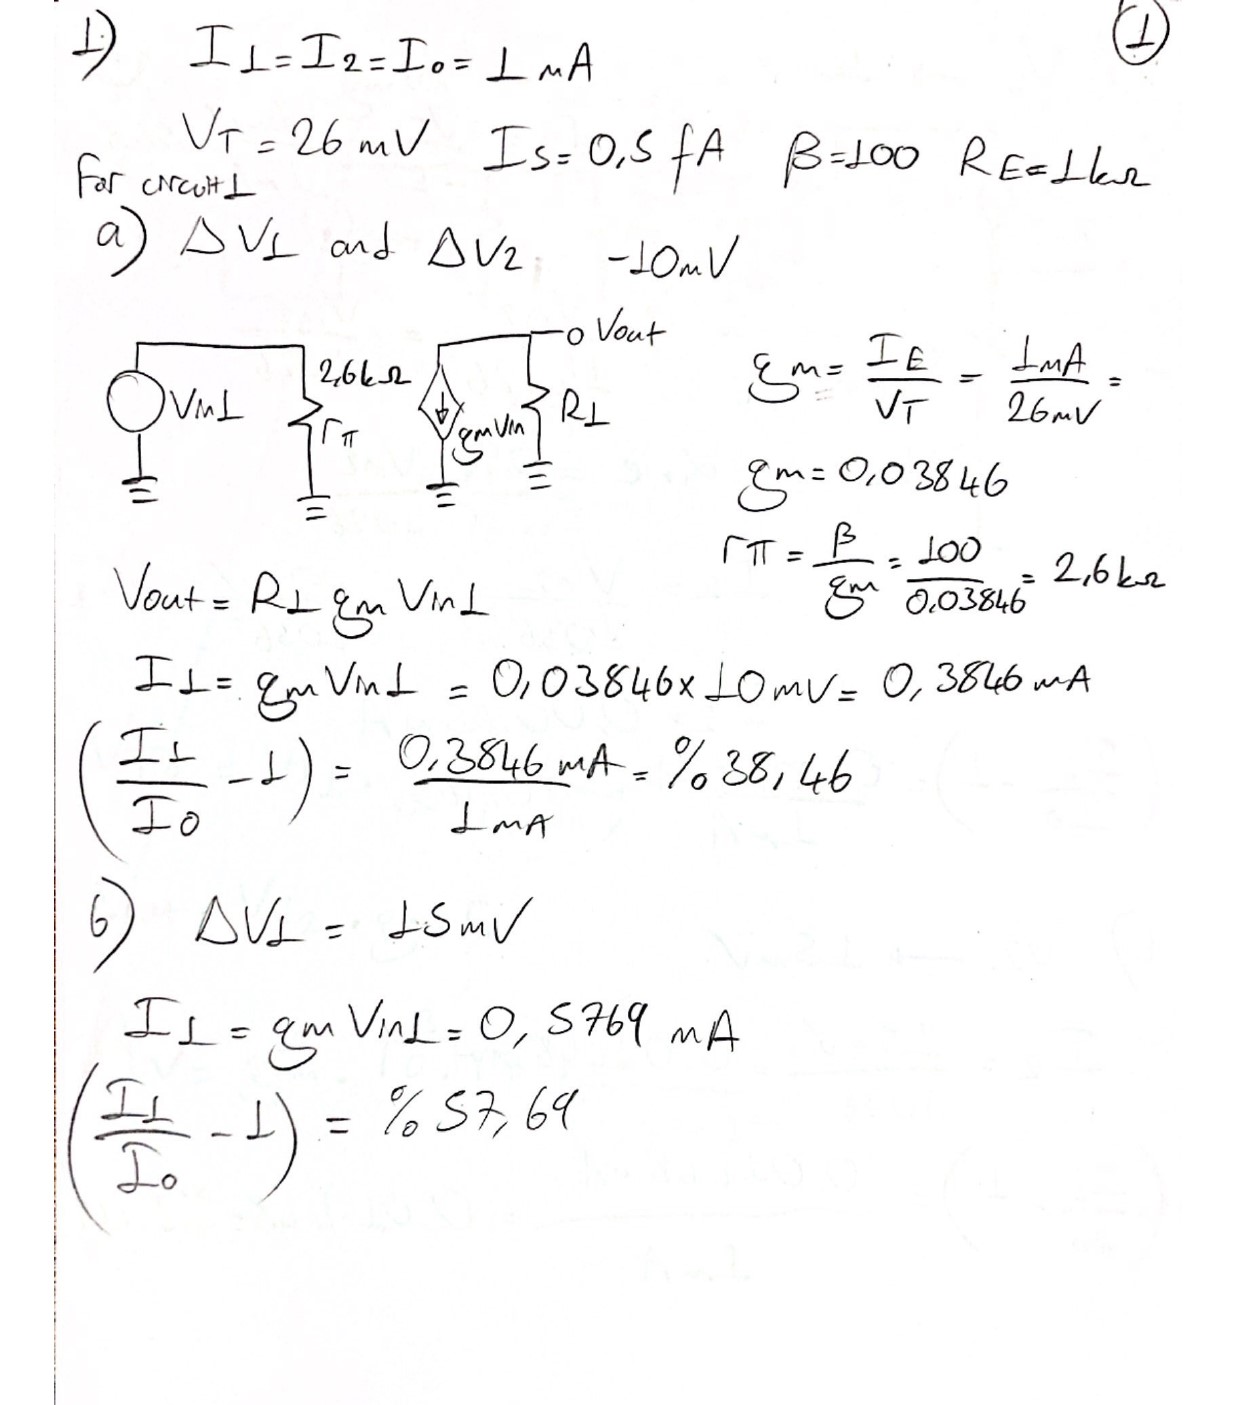 1) I1=I2=I0= 1 mA
①
VT = 26 mV IS= 0,5 fA β=100 RE=1kΩ
For circuit 1
a) ΔV1 and ΔV2 -10mV
Vin1
2,6kΩ
rπ
gmVin
R1
Vout
gm= IE/VT = 1mA/26mV =
gm= 0,03846
rπ = β/gm = 100/0,03846 = 2,6kΩ
Vout = R1 gm Vin1
I1= gm Vin1 = 0,03846x10mV= 0,3846 mA
(I1/I0 -1) = 0,3846 mA/1mA = %38,46
b) ΔV1 = 15mV
I1 = gm Vin1= 0,5769 mA
(I1/I0 -1) = %57,69